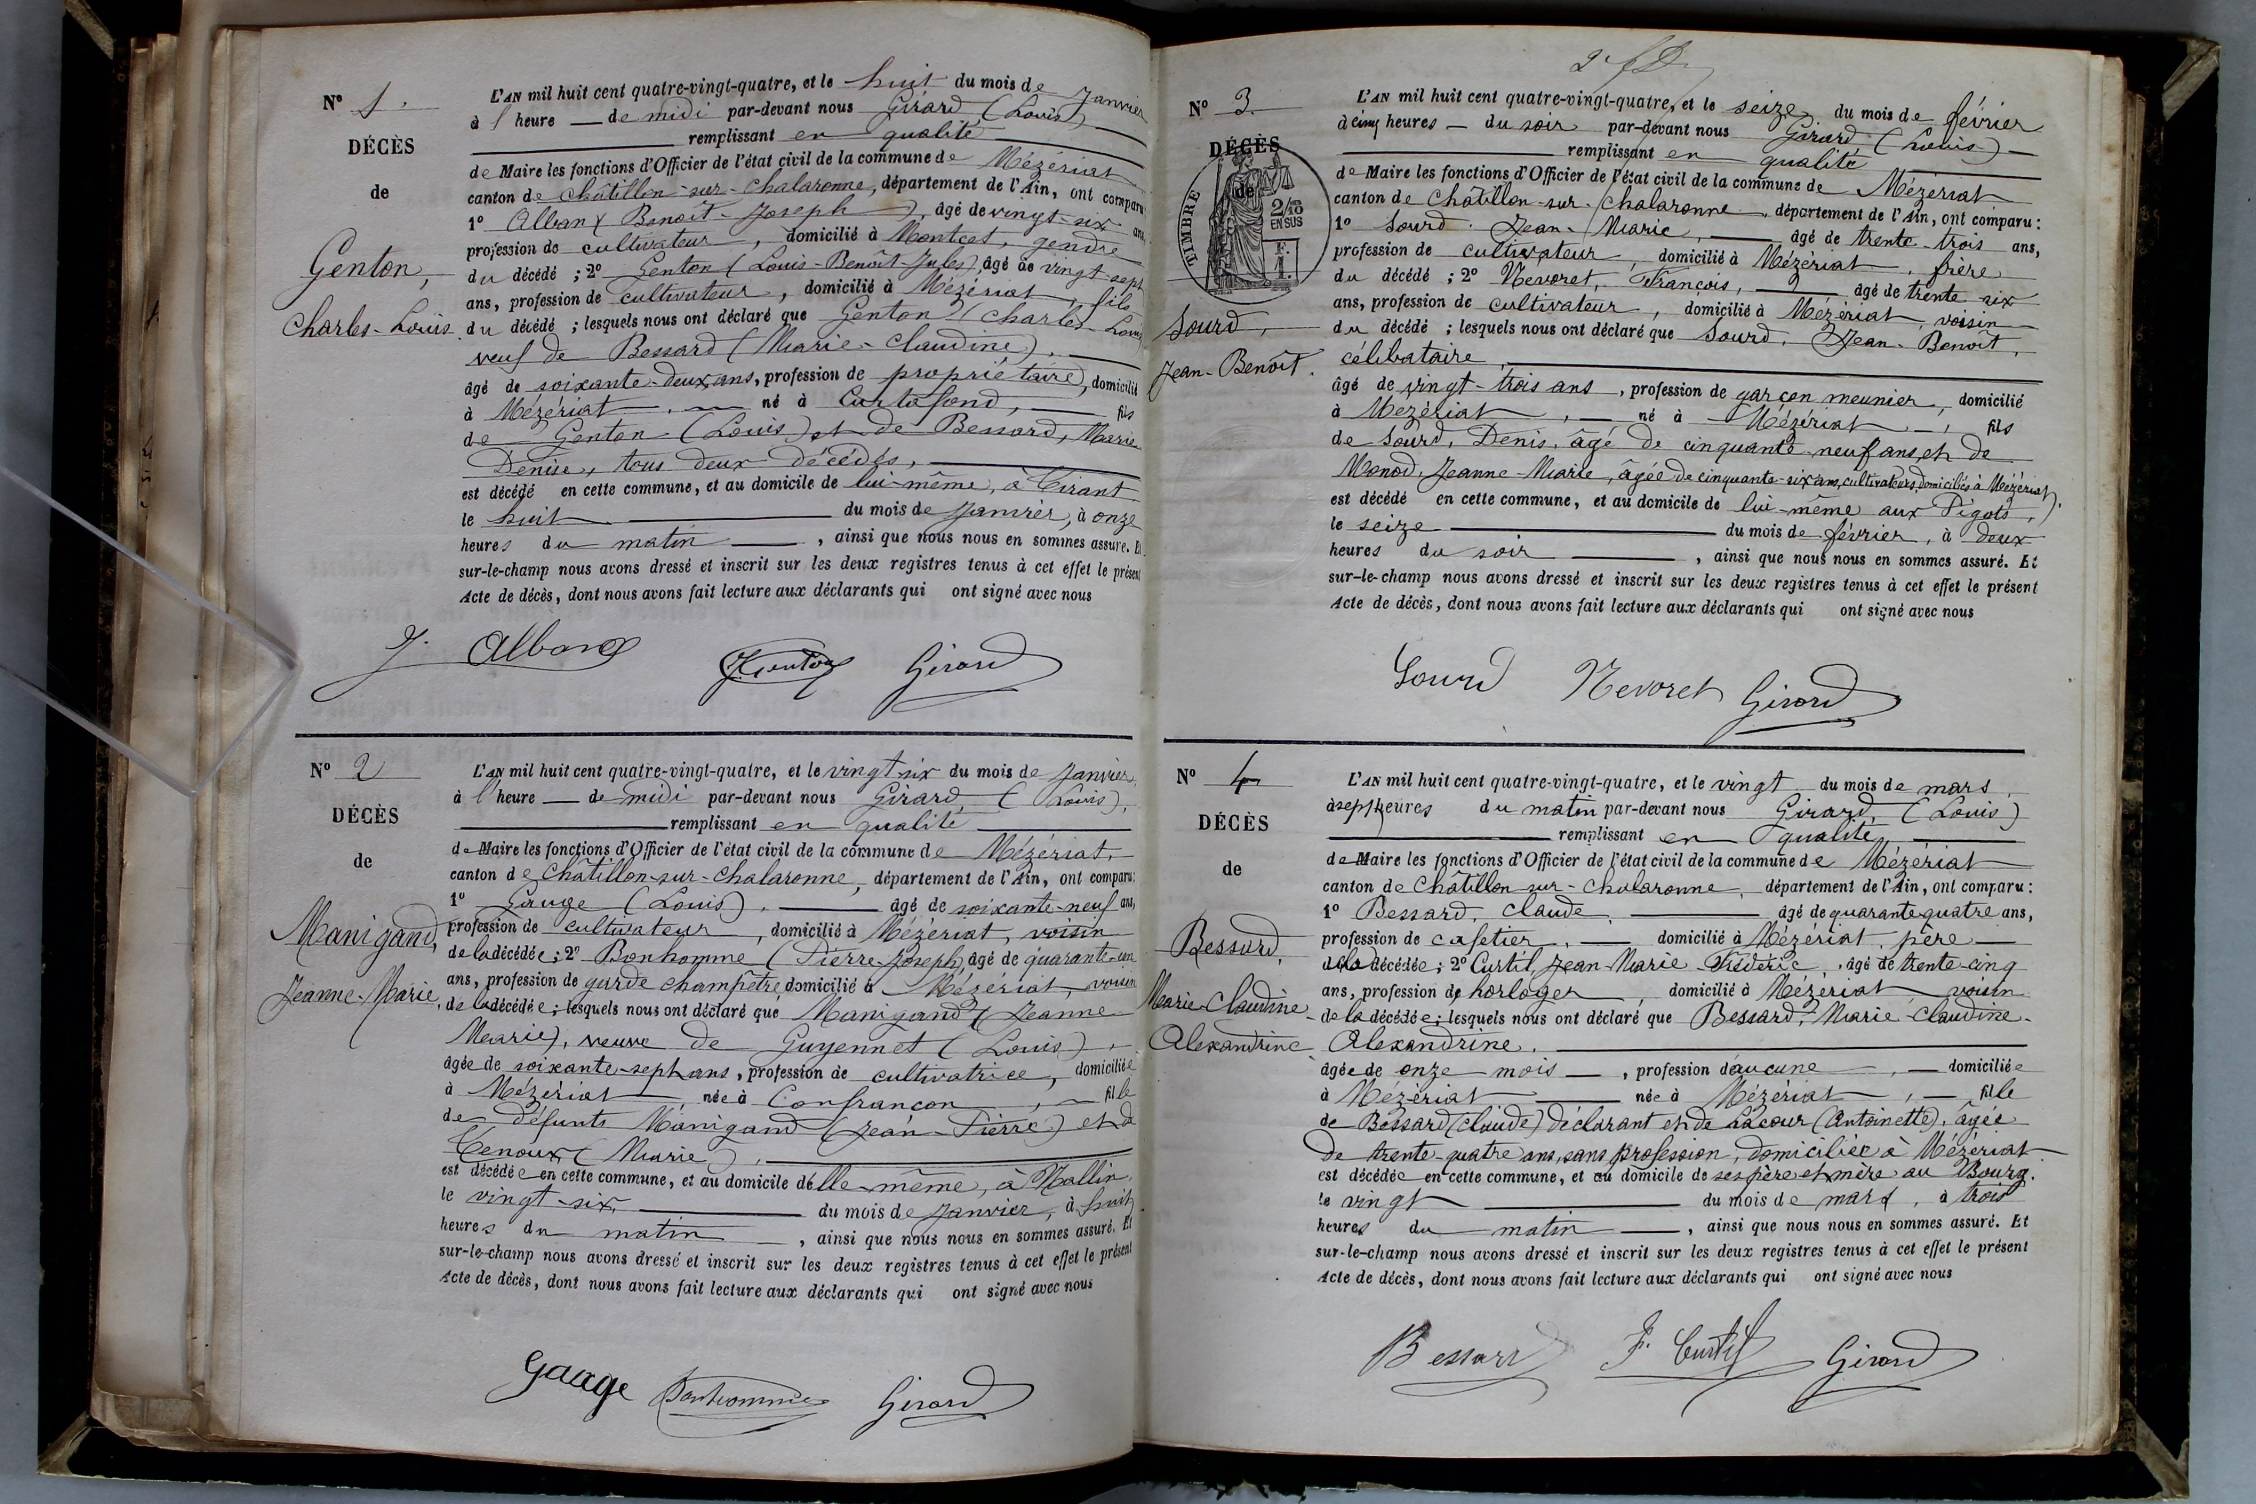 Nº 1.
DÉCÈS
de
Genton,
Charles-Louis.
L'AN mil huit cent quatre-vingt-quatre, et le huit du mois de Janvier
à l'heure — de midi par-devant nous Girard (Louis)
remplissant en qualité
de Maire les fonctions d'Officier de l'état civil de la commune de Mézériat
canton de Châtillon-sur-Chalaronne, département de l'Ain, ont comparu
1º Alban (Benoît-Joseph), âgé de vingt-six ans,
profession de cultivateur, domicilié à Montcet, gendre
du décédé ; 2º Genton (Louis-Benoît-Jules), âgé de vingt-sept
ans, profession de cultivateur, domicilié à Mézériat, fils
du décédé ; lesquels nous ont déclaré que Genton (Charles-Louis)
veuf de Bessard (Marie-Claudine),
âgé de soixante-deux ans, profession de propriétaire, domicilié
à Mézériat, né à Curtafond, fils
de Genton (Louis) et de Bessard, Marie
Denise, tous deux décédés,
est décédé en cette commune, et au domicile de lui-même, à Tirant
le huit du mois de Janvier, à onze
heures du matin, ainsi que nous nous en sommes assuré. Et
sur-le-champ nous avons dressé et inscrit sur les deux registres tenus à cet effet le présent
Acte de décès, dont nous avons fait lecture aux déclarants qui ont signé avec nous
J. Alban JGenton Girard
Nº 2
DÉCÈS
de
Manigand,
Jeanne-Marie,
L'AN mil huit cent quatre-vingt-quatre, et le vingt-six du mois de Janvier,
à l'heure — de midi par-devant nous Girard, (Louis),
remplissant en qualité
de Maire les fonctions d'Officier de l'état civil de la commune de Mézériat,
canton de Châtillon-sur-Chalaronne, département de l'Ain, ont comparu:
1º Gauge (Louis), âgé de soixante-neuf ans,
profession de cultivateur, domicilié à Mézériat, voisin
de la décédée ; 2º Bonhomme (Pierre-Joseph), âgé de quarante-un
ans, profession de garde champêtre, domicilié à Mézériat, voisin
de la décédée ; lesquels nous ont déclaré que Manigand (Jeanne
Marie), veuve de Guyennet (Louis),
âgée de soixante-sept ans, profession de cultivatrice, domiciliée
à Mézériat née à Confrançon, fille
de défunts Manigand (Jean-Pierre) et de
Tenoux (Marie),
est décédée en cette commune, et au domicile d'elle-même, à Mallin,
le vingt-six, du mois de Janvier, à huit
heures du matin, ainsi que nous nous en sommes assuré. Et
sur-le-champ nous avons dressé et inscrit sur les deux registres tenus à cet effet le présent
Acte de décès, dont nous avons fait lecture aux déclarants qui ont signé avec nous
Gauge Bonhomme Girard
Nº 3.
DÉCÈS
de
TIMBRE
2/10
EN SUS
F.
1.
Sourd,
Jean-Benoît.
L'AN mil huit cent quatre-vingt-quatre, et le seize du mois de février
à cinq heures — du soir par-devant nous Girard (Louis) —
remplissant en qualité
de Maire les fonctions d'Officier de l'état civil de la commune de Mézériat
canton de Châtillon-sur-Chalaronne, département de l'Ain, ont comparu :
1º Sourd, Jean-Marie, âgé de trente-trois ans,
profession de cultivateur, domicilié à Mézériat, frère
du décédé ; 2º Nevoret, François, âgé de trente-six
ans, profession de cultivateur, domicilié à Mézériat, voisin
du décédé ; lesquels nous ont déclaré que Sourd, Jean-Benoît,
célibataire,
âgé de vingt-trois ans, profession de garçon meunier, domicilié
à Mézériat, né à Mézériat, fils
de Sourd, Denis, âgé de cinquante-neuf ans, et de
Monod, Jeanne-Marie, âgée de cinquante-six ans, cultivateurs, domiciliés à Mézériat,
est décédé en cette commune, et au domicile de lui-même aux Pigots,
le seize du mois de février, à deux
heures du soir, ainsi que nous nous en sommes assuré. Et
sur-le-champ nous avons dressé et inscrit sur les deux registres tenus à cet effet le présent
Acte de décès, dont nous avons fait lecture aux déclarants qui ont signé avec nous
Sourd Nevoret Girard
Nº 4
DÉCÈS
de
Bessard,
Marie-Claudine
Alexandrine
L'AN mil huit cent quatre-vingt-quatre, et le vingt du mois de mars,
à sept heures du matin par-devant nous Girard, (Louis)
remplissant en qualité
de Maire les fonctions d'Officier de l'état civil de la commune de Mézériat
canton de Châtillon-sur-Chalaronne, département de l'Ain, ont comparu :
1º Bessard, Claude, âgé de quarante-quatre ans,
profession de cafetier, domicilié à Mézériat, père
de la décédée ; 2º Curtil, Jean-Marie-Frédéric, âgé de trente-cinq
ans, profession de horloger, domicilié à Mézériat, voisin
de la décédée ; lesquels nous ont déclaré que Bessard, Marie-Claudine-
Alexandrine,
âgée de onze mois —, profession d'aucune, — domiciliée
à Mézériat née à Mézériat, — fille
de Bessard (Claude) déclarant et de Lacour (Antoinette), âgée
de trente-quatre ans, sans profession, domiciliée à Mézériat
est décédée en cette commune, et au domicile de ses père et mère au Bourg.
le vingt du mois de mars, à trois
heures du matin, ainsi que nous nous en sommes assuré. Et
sur-le-champ nous avons dressé et inscrit sur les deux registres tenus à cet effet le présent
Acte de décès, dont nous avons fait lecture aux déclarants qui ont signé avec nous
Bessard F. Curtil Girard